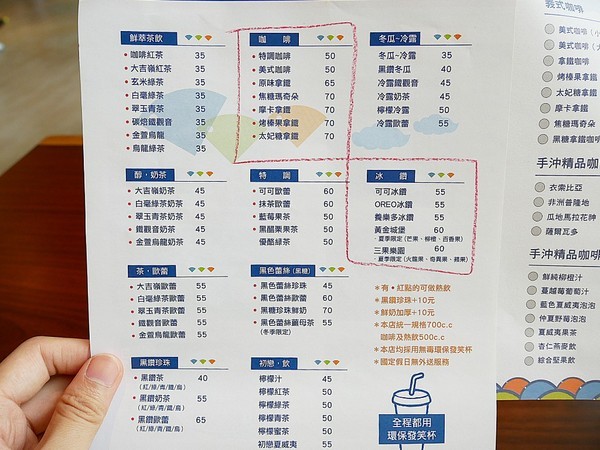 鮮萃茶飲
• 咖啡紅茶 35
• 大吉嶺紅茶 35
• 玄米綠茶 35
• 白毫綠茶 35
• 翠玉青茶 35
• 碳焙鐵觀音 35
• 金萱烏龍 35
• 烏龍綠茶 35
醇・奶茶
• 大吉嶺奶茶 45
• 白毫綠茶奶茶 45
• 翠玉青茶奶茶 45
• 鐵觀音奶茶 45
• 金萱烏龍奶茶 45
茶・歐蕾
• 大吉嶺歐蕾 55
• 白毫綠茶歐蕾 55
• 翠玉青茶歐蕾 55
• 鐵觀音歐蕾 55
• 金萱烏龍歐蕾 55
黑鑽珍珠
• 黑鑽茶 40
(紅/綠/青/鐵/烏)
• 黑鑽奶茶 55
(紅/綠/青/鐵/烏)
• 黑鑽歐蕾 65
(紅/綠/青/鐵/烏)
咖 啡
• 特調咖啡 50
• 美式咖啡 50
• 原味拿鐵 65
• 焦糖瑪奇朵 70
• 摩卡拿鐵 70
• 烤榛果拿鐵 70
• 太妃糖拿鐵 70
特 調
• 可可歐蕾 60
• 抹茶歐蕾 60
• 藍莓果茶 50
• 黑醋栗果茶 50
• 優酪綠茶 50
黑色蕾絲(黑糖)
• 黑色蕾絲珍珠 45
• 黑色蕾絲歐蕾 60
• 黑糖珍珠鮮奶 70
• 黑色蕾絲薑母茶 55
(冬季限定)
初戀・飲
檸檬汁 45
檸檬紅茶 50
檸檬綠茶 50
檸檬青茶 50
檸檬蜜茶 50
初戀夏威夷 55
冬瓜~冷露
冬瓜~冷露 35
黑鑽冬瓜 40
冷露鐵觀音 45
冷露奶茶 45
檸檬冷露 50
冷露歐蕾 55
冰 鑽
可可冰鑽 55
OREO冰鑽 55
養樂多冰鑽 55
黃金城堡 60
・夏季限定(芒果、柳橙、百香果)
三果樂園 60
・夏季限定(火龍果、奇異果、蘋果)
＊有•紅點的可做熱飲
＊黑鑽珍珠+10元
＊鮮奶加厚+10元
＊本店統一規格700c.c
咖啡及熱飲500c.c
＊本店均採用無毒環保發笑杯
＊國定假日無外送服務
全程都用
環保發笑杯
義式咖啡
美式咖啡
美式咖啡
拿鐵咖啡
烤榛果拿鐵
太妃糖拿鐵
摩卡拿鐵
焦糖瑪奇朵
黑糖拿鐵
手沖精品咖
衣索比亞
非洲普隆地
瓜地馬拉花神
薩爾瓦多
手沖精品咖啡
鮮純柳橙汁
蔓越莓葡萄汁
藍色夏威夷泡泡
仲夏野莓泡泡
夏威夷果茶
杏仁燕麥飲
綜合堅果飲